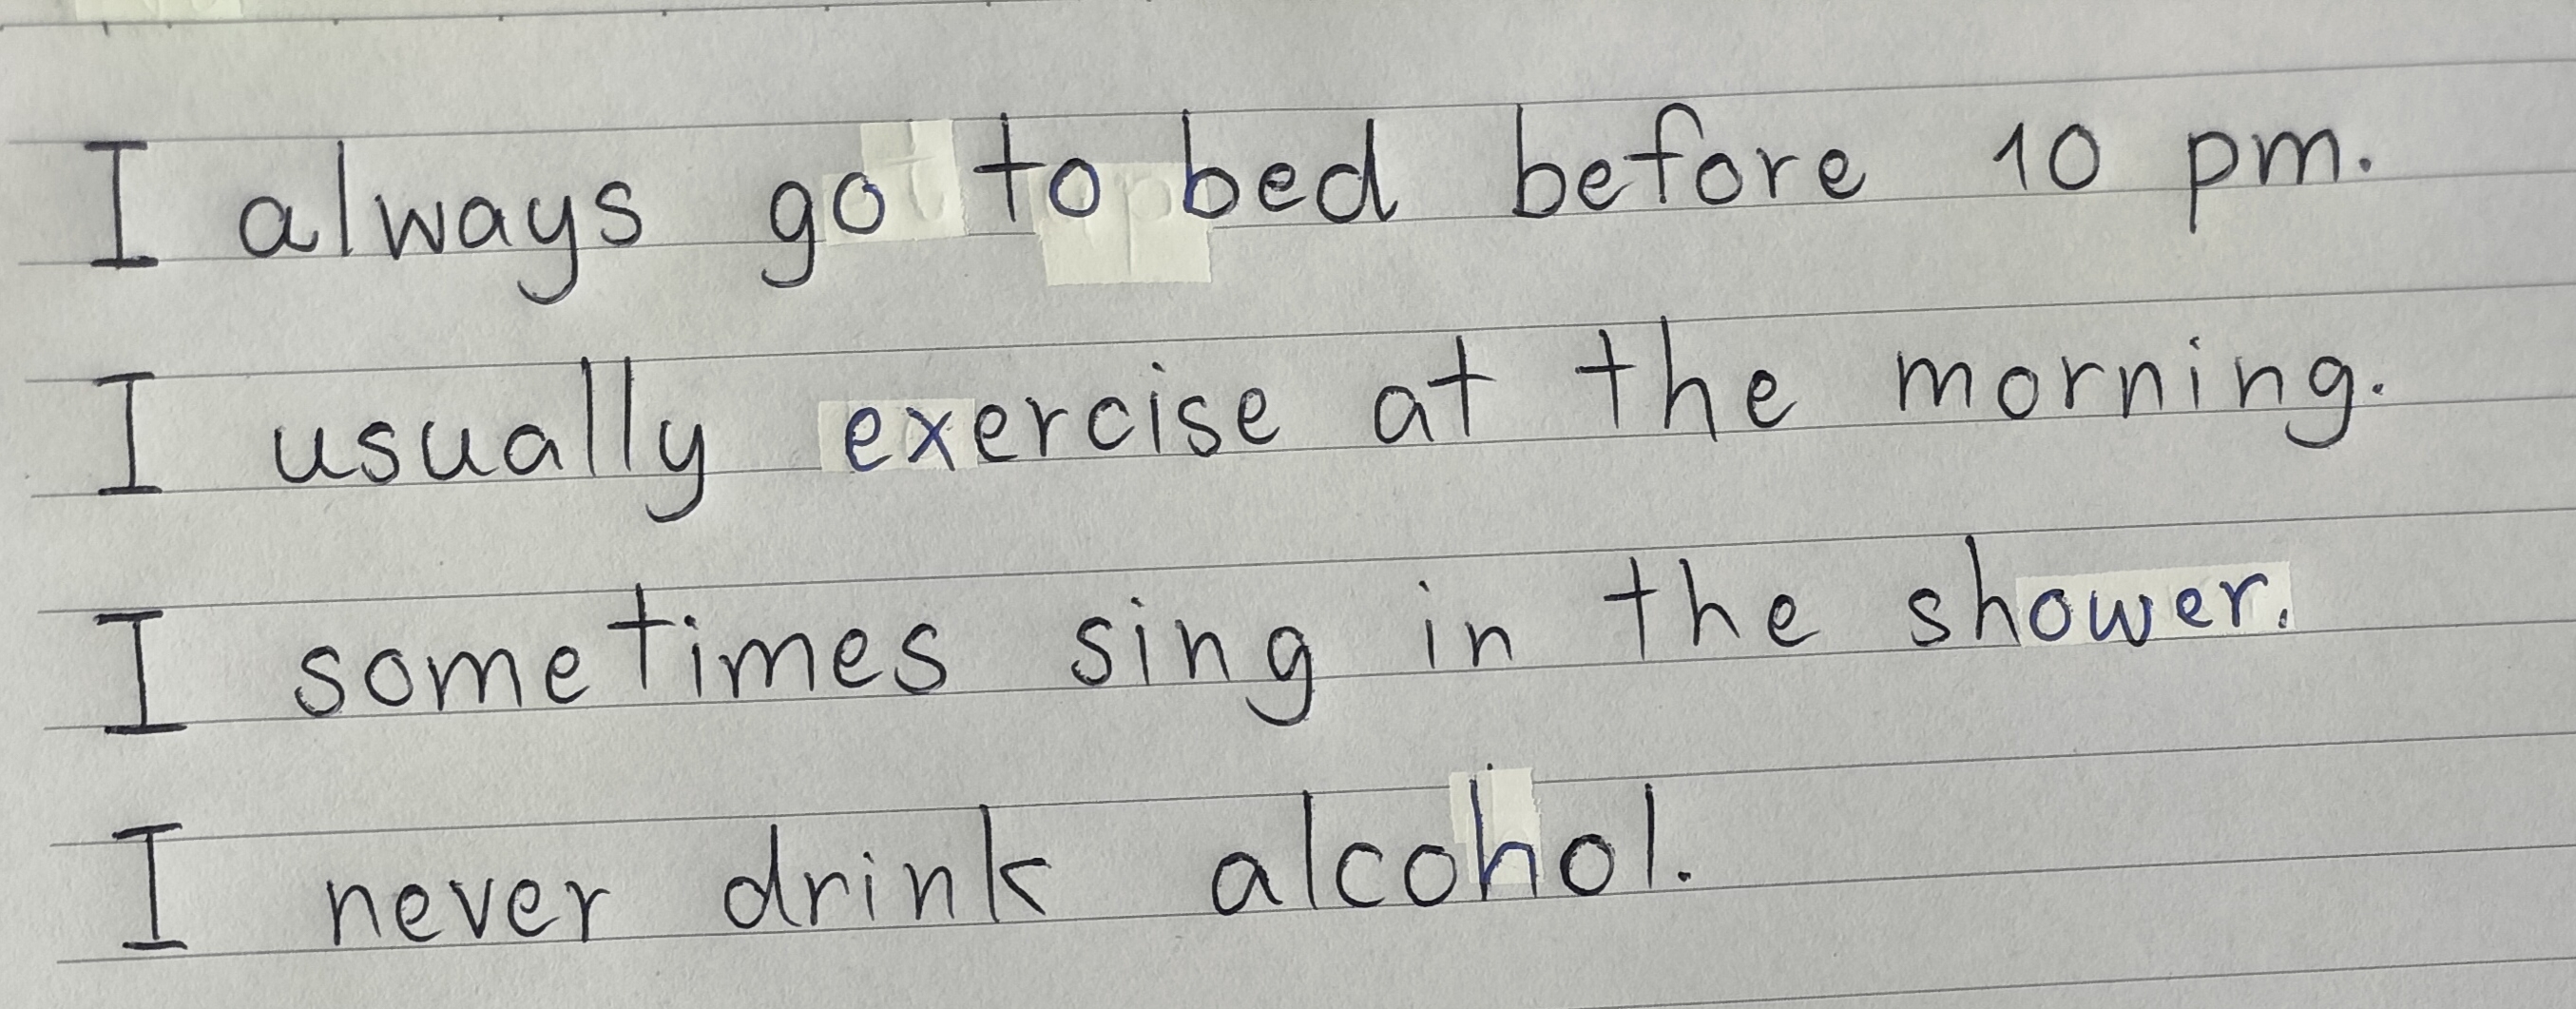 I always go to bed before 10 pm.
I usually exercise at the morning.
I sometimes sing in the shower.
I never drink alcohol.